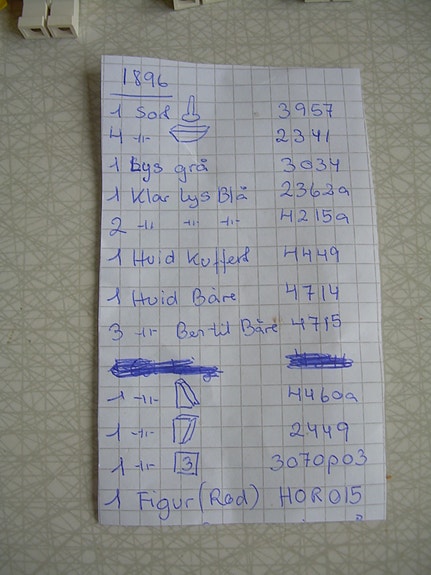 1896
1 Sort 3957
4 -11- 2341
1 Lys grå 3034
1 Klar Lys Blå 2362a
2 -11- -11- -11- 4215a
1 Hvid Kuffert 4449
1 Hvid Båre 4714
3 -11- Ben til Båre 4715
1 -11- 4460a
1 -11- 2449
1 -11- 3 3070p03
1 Figur (Rød) HOR015